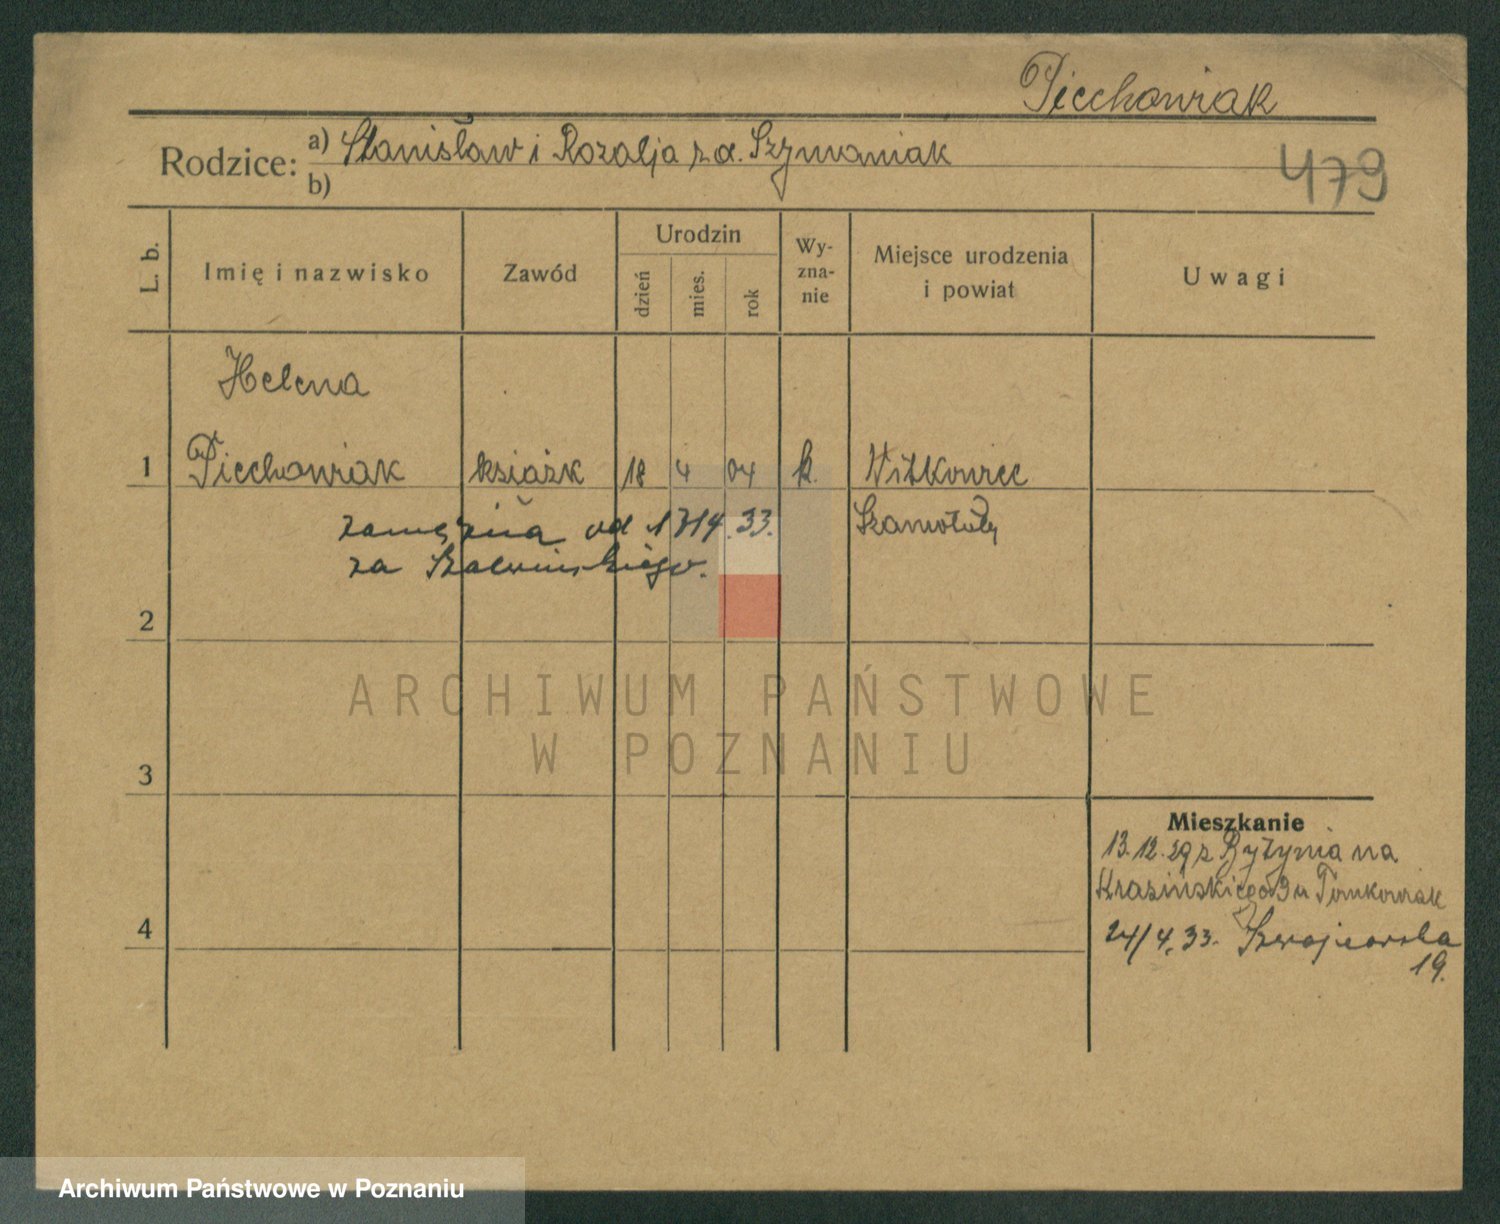 Piechowiak
Rodzice: a) Stanisław i Rozalja z d. Szymaniak
b)
479
L. b.
Imię i nazwisko
Zawód
Urodzin
dzień
mies.
rok
Wy-
zna-
nie
Miejsce urodzenia
i powiat
Uwagi
Helena
1 Piechowiak książk 18 4 04 k. Witkowiec
zamężna od 17/4.33. Szamotuły
za
2
ARCHIWUM PAŃSTWOWE
W POZNANIU
3
Mieszkanie
13.12.29 z Bytynia na
Krasińskiego 9 u Tomkowiak
4
24/4.33. Szwajcarska
19.
Archiwum Państwowe w Poznaniu